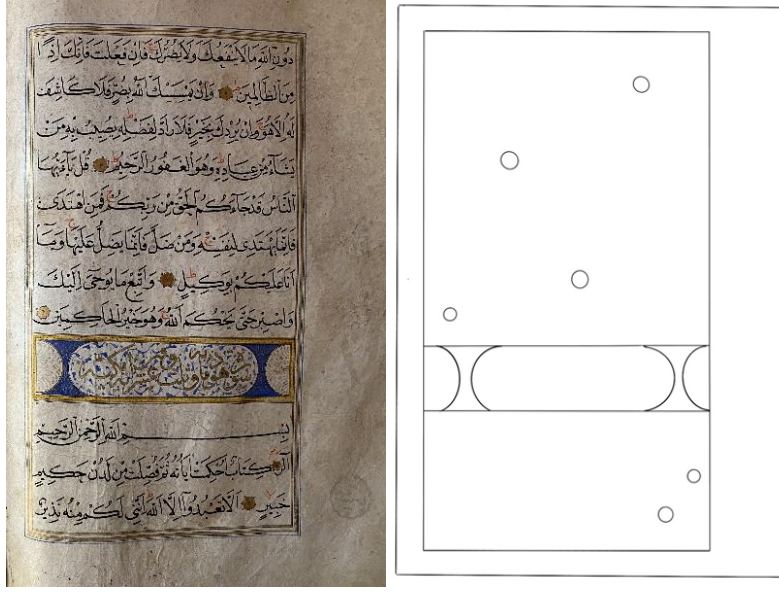 دون الله ما لا ينفعك ولا يضرك فان فعلت فانك اذا
من الظالمين وان يمسسك الله بضر فلا كاشف
له الا هو وان يردك بخير فلا راد لفضله يصيب به من
يشاء من عباده وهو الغفور الرحيم قل يا ايها
الناس قد جاءكم الحق من ربكم فمن اهتدى
فانما يهتدى لنفسه ومن ضل فانما يضل عليها وما
انا عليكم بوكيل واتبع ما يوحى اليك
واصبر حتى يحكم الله وهو خير الحاكمين
سورة هود
بسم الله الرحمن الرحيم
الر كتاب احكمت اياته ثم فصلت من لدن حكيم
خبير الا تعبدوا الا الله اننى لكم منه نذير